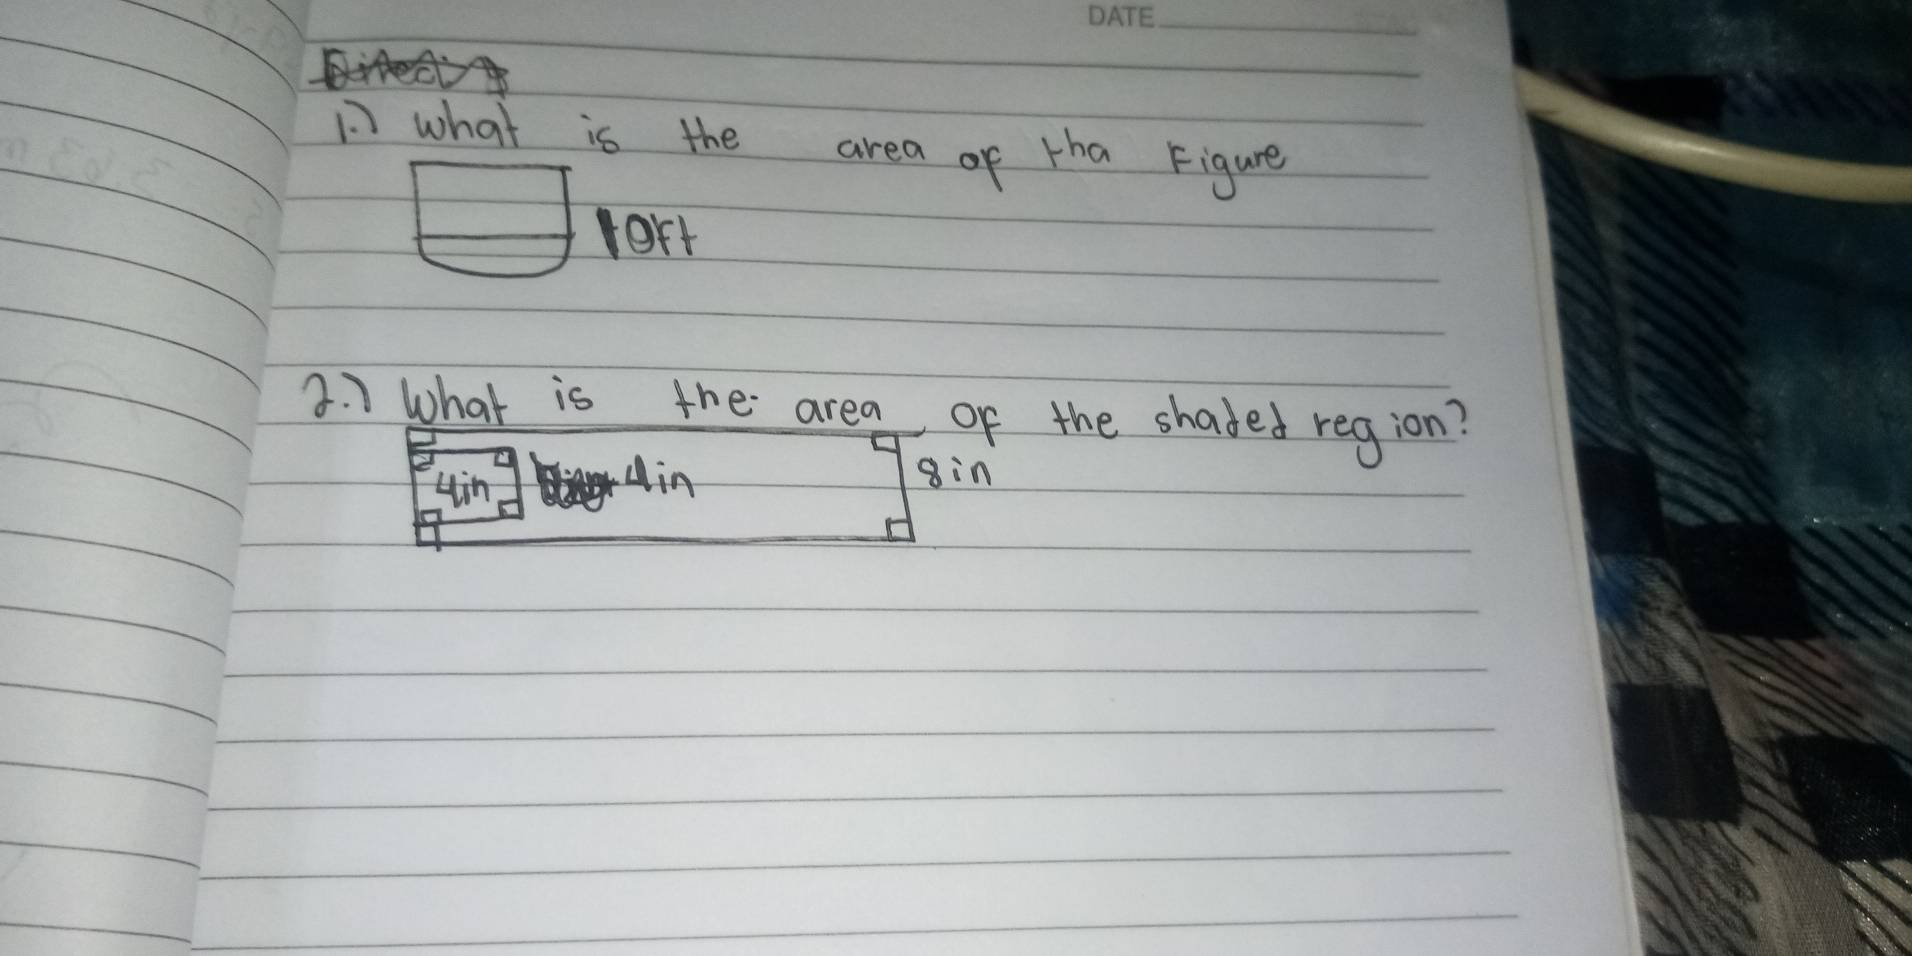 DATE
1.) What is the area of tha Figure
10ft
2.) What is the area of the shaded region?
4in 4in 8in